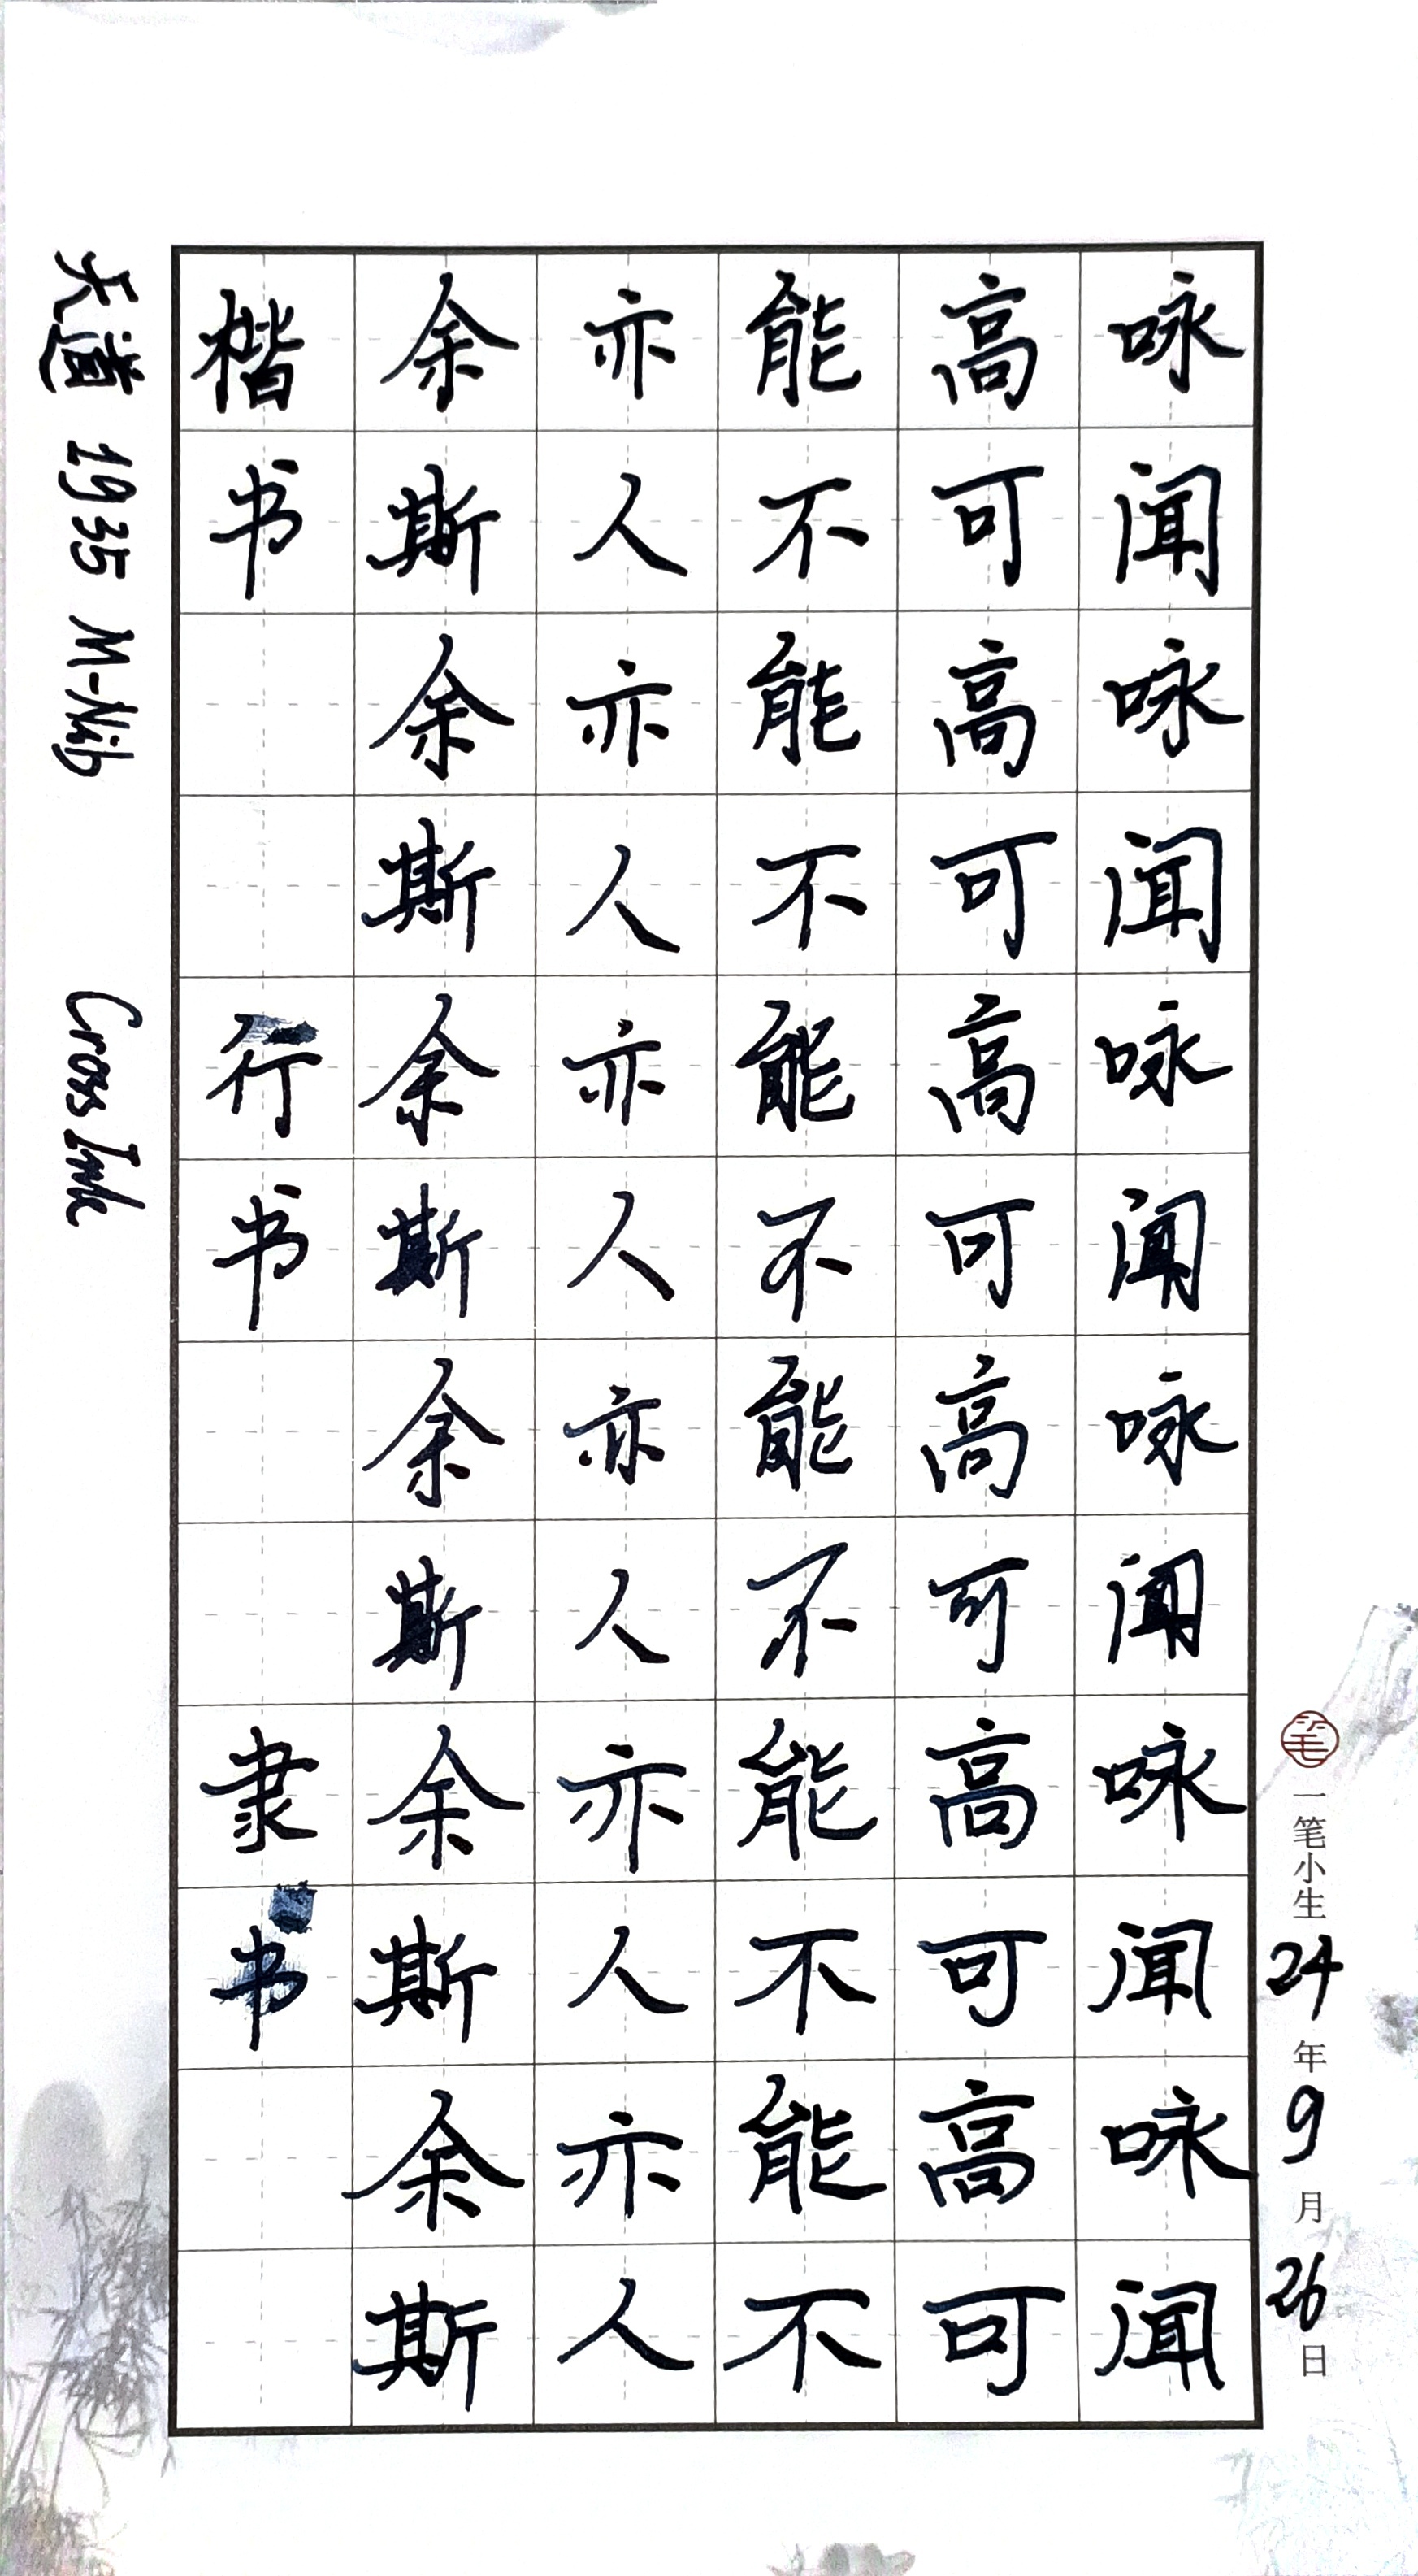 楷余亦能高咏
书斯人不可闻
余亦能高咏
斯人不可闻
行余亦能高咏
书斯人不可闻
余亦能高咏
斯人不可闻
隶余亦能高咏
书斯人不可闻
余亦能高咏
斯人不可闻
大道 1935 M-Nib Cross Ink
笔 一笔小生 24年9月26日